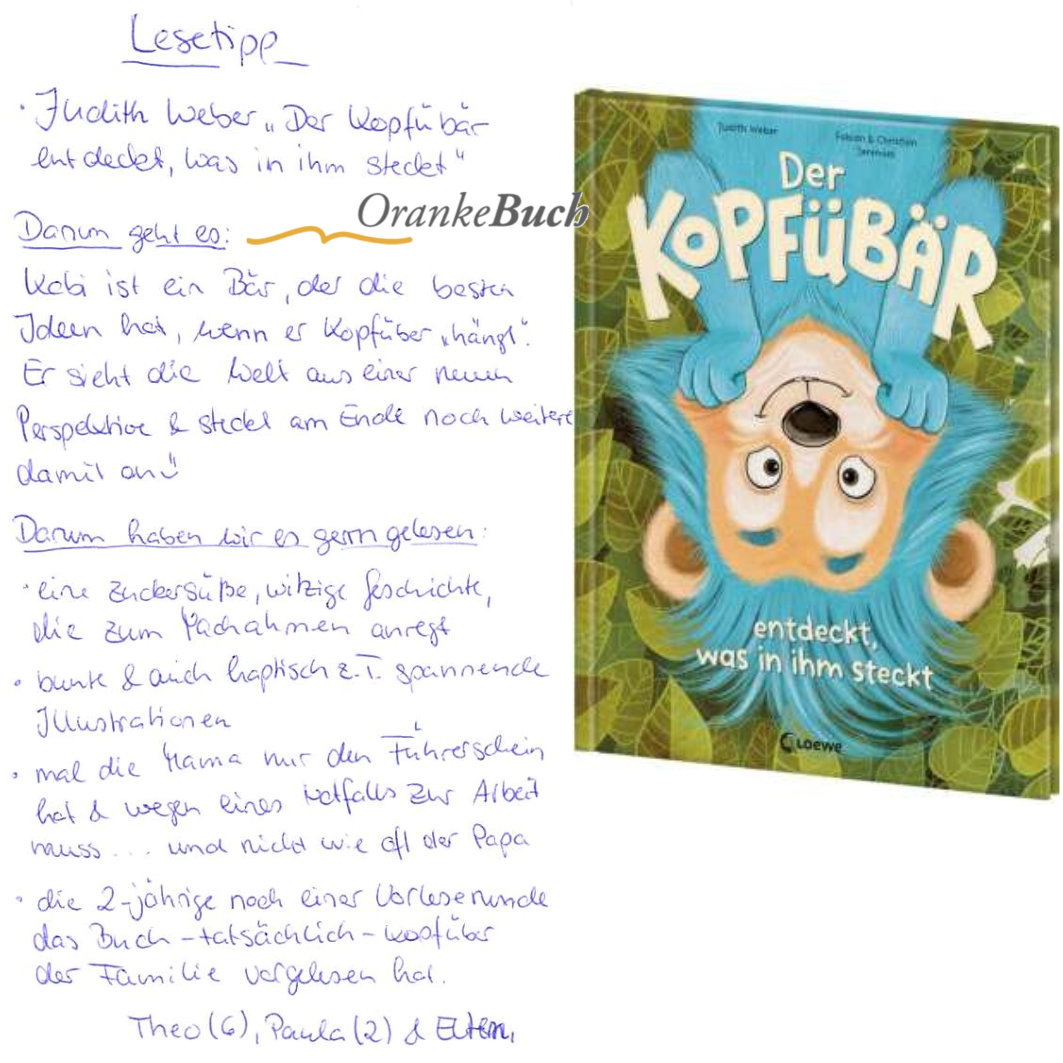 Lesetipp
· Judith Weber „Der Kopfübär
entdeckt, was in ihm steckt"
OrankeBuch
Darum geht es:
Kobi ist ein Bär, der die besten
Ideen hat, wenn er Kopfüber „hängt".
Er sieht die Welt aus einer neuen
Perspektive & steckt am Ende noch weitere
damit an
Darum haben wir es gern gelesen:
· eine zuckersüße, witzige Geschichte,
die zum Nachahmen anregt
· bunte & auch haptisch z.T. spannende
Illustrationen
· mal die Mama nur den Führerschein
hat & wegen eines Notfalls zur Arbeit
muss ... und nicht wie oft der Papa
· die 2-jährige nach einer Vorleserunde
das Buch - tatsächlich - kopfüber
der Familie vorgelesen hat.
Theo (6), Paula (2) & Eltern,
Judith Weber
Fabian & Christian
Jeremies
Der
KOPFÜBÄR
entdeckt,
was in ihm steckt
Loewe